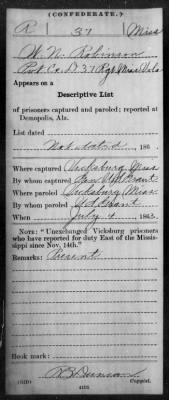 (CONFEDERATE.)
R 37 Miss
W. N. Robinson
Pvt Co. D 37 Rgt Miss Vols
Appears on a
Descriptive List
of prisoners captured and paroled; reported at
Demopolis, Ala.
List dated
Not dated, 186 .
Where captured Vicksburg Miss.
By whom captured Gen. Grant
Where paroled Vicksburg Miss.
By whom paroled Grant
When July 4 1863.
NOTE: "Unexchanged Vicksburg prisoners
who have reported for duty East of the Missis-
sippi since Nov. 14th."
Remarks: Present
Book mark:
Copyist.